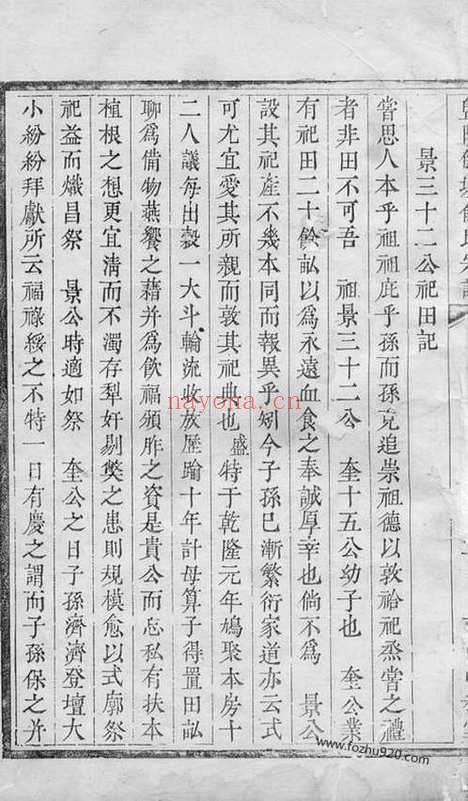 景三十二公祀田記
嘗思人本乎祖祖庇乎孫而孫克追崇祖德以敦祫祀烝嘗之禮
者非田不可吾 祖景三十二公 奎十五公幼子也 奎公業
有祀田二十餘訟以爲永遠血食之奉誠厚幸也倘不爲 景公
設其祀產不幾本同而報異乎矧今子孫已漸繁衍家道亦云式
可尤宜愛其所親而敦其祀典也盛特于乾隆元年鳩聚本房十
二人議每出穀一大斗輪流收放歷踰十年計母算子得置田訟
聊爲備物燕饗之藉并爲飲福頒胙之資是貴公而忘私有扶本
植根之想更宜清而不濁存犁奸剔獘之患則規模愈以式廓祭
祀益而熾昌祭 景公時適如祭 奎公之日子孫濟濟登壇大
小紛紛拜獻所云福祿綏之不特一日有慶之謂而子孫保之并
nayona.cn
www.fozhu920.com